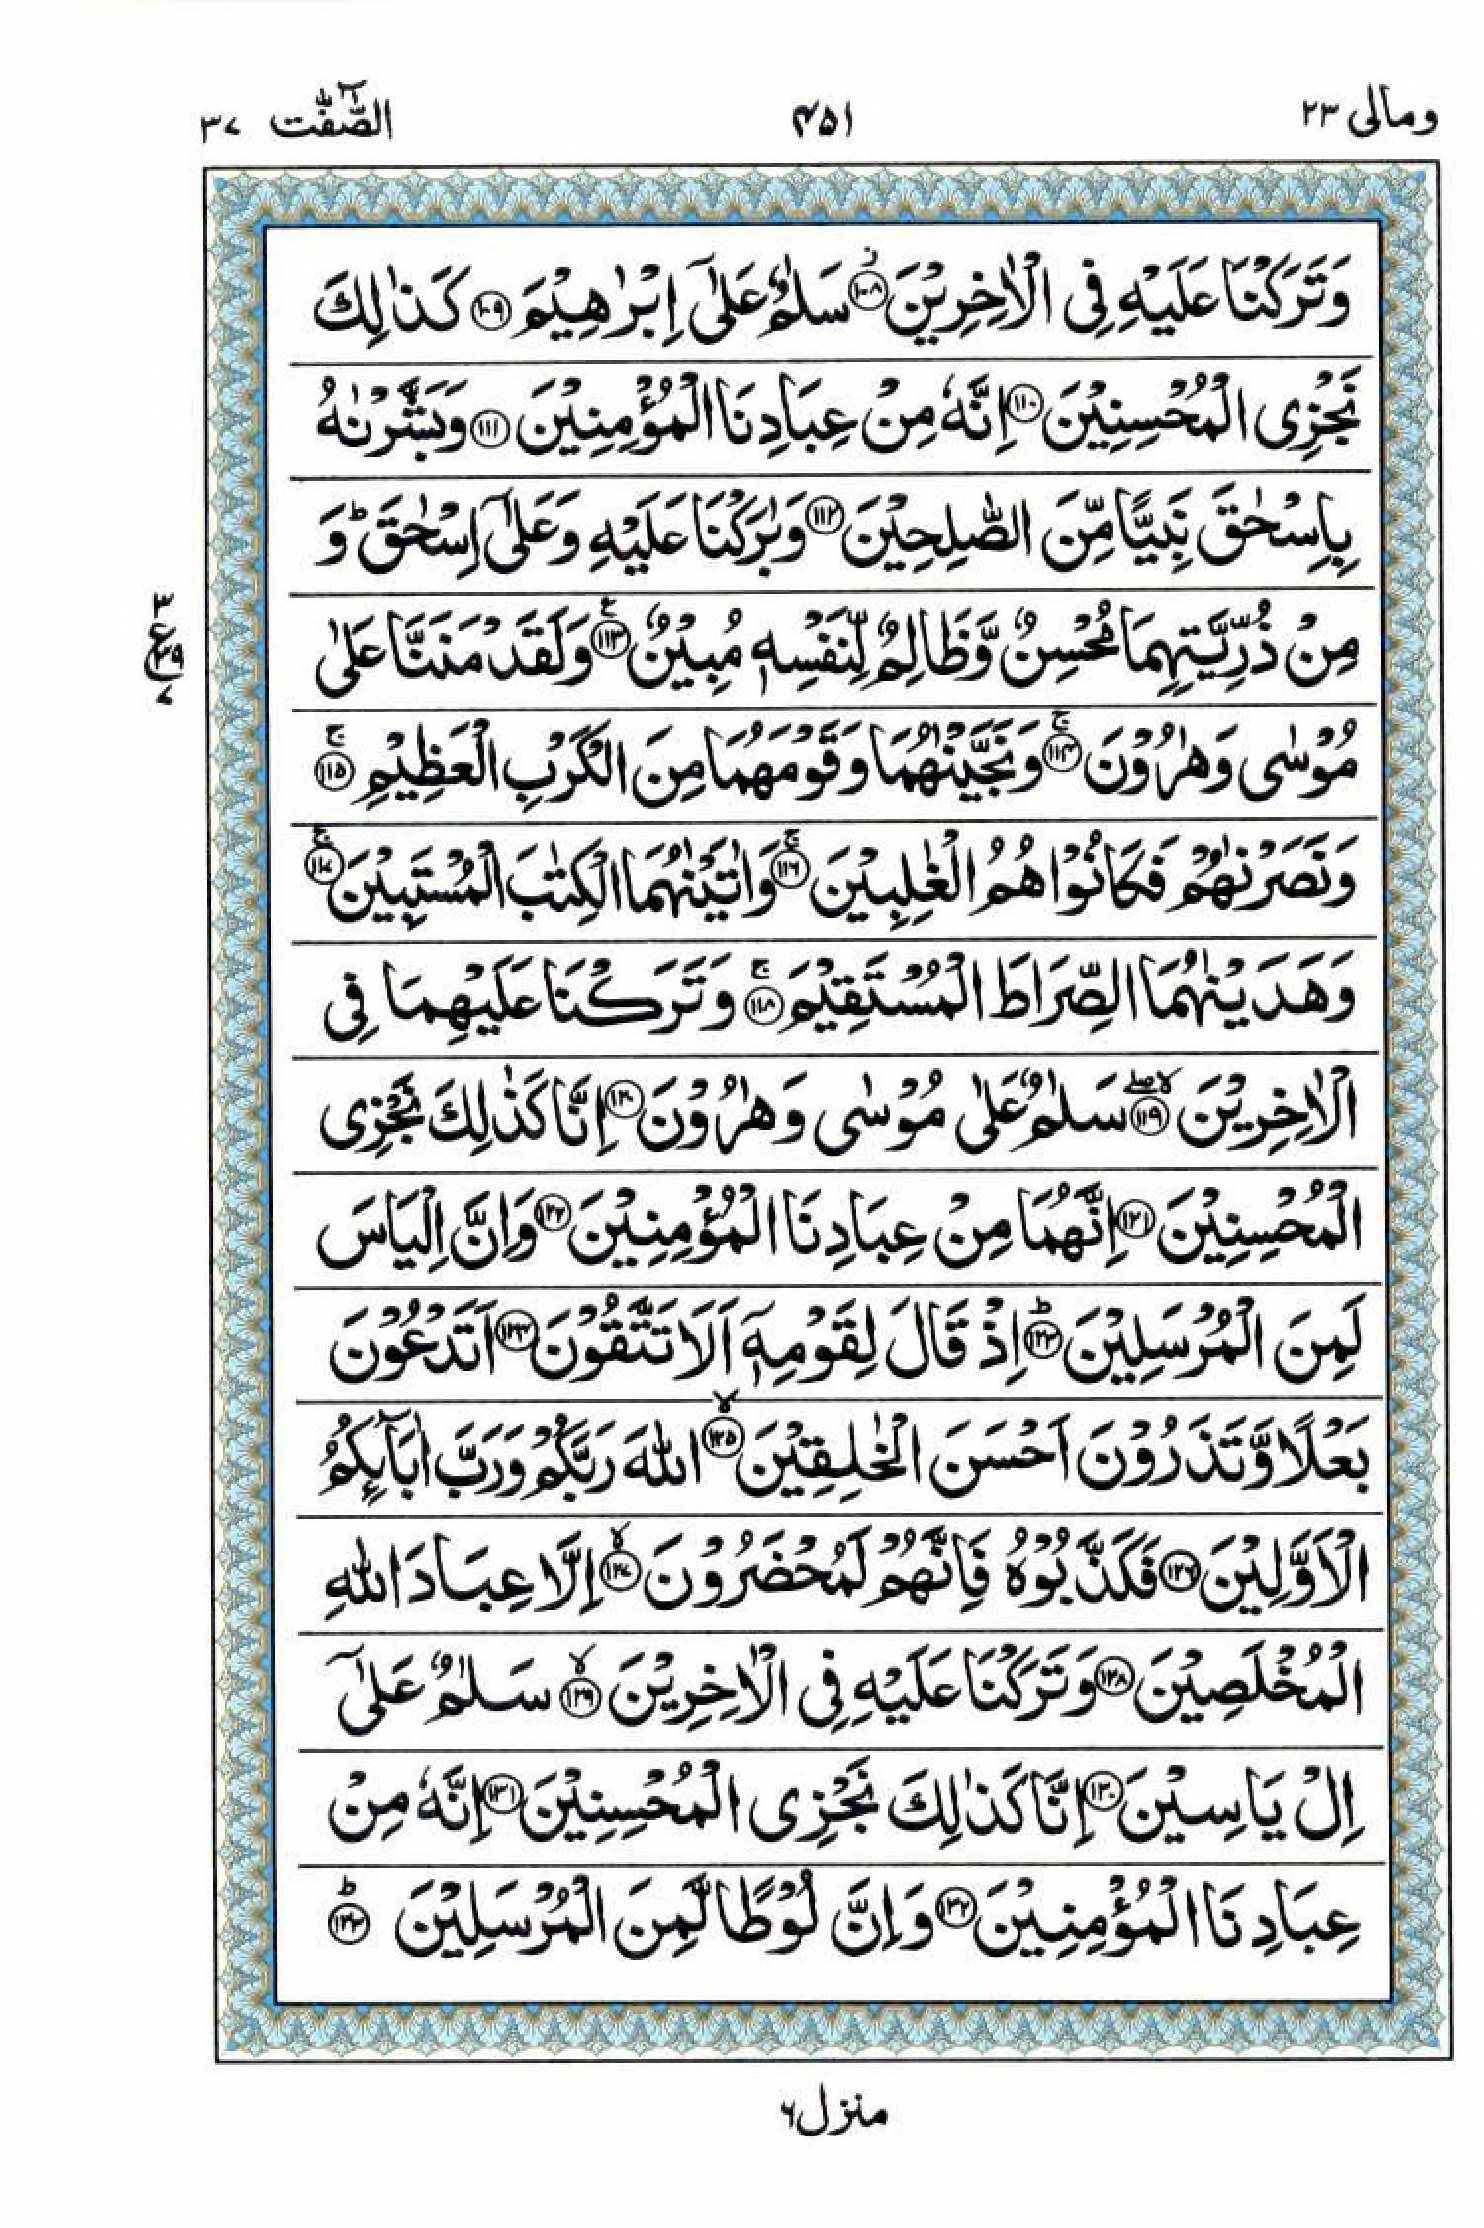 ومالی ۲۳
۴۵۱
الصّٰٓفّٰت ۳۷
وَتَرَكْنَا عَلَيْهِ فِى الْاٰخِرِيْنَ ۱۰۸ سَلٰمٌ عَلٰٓى اِبْرٰهِيْمَ ۱۰۹ كَذٰلِكَ
نَجْزِى الْمُحْسِنِيْنَ ۱۱۰ اِنَّهٗ مِنْ عِبَادِنَا الْمُؤْمِنِيْنَ ۱۱۱ وَبَشَّرْنٰهُ
بِاِسْحٰقَ نَبِيًّا مِّنَ الصّٰلِحِيْنَ ۱۱۲ وَبٰرَكْنَا عَلَيْهِ وَعَلٰٓى اِسْحٰقَ ؕ وَ
مِنْ ذُرِّيَّتِهِمَا مُحْسِنٌ وَّظَالِمٌ لِّنَفْسِهٖ مُبِيْنٌ ۱۱۳ وَلَقَدْ مَنَنَّا عَلٰى
مُوْسٰى وَهٰرُوْنَ ۱۱۴ وَنَجَّيْنٰهُمَا وَقَوْمَهُمَا مِنَ الْكَرْبِ الْعَظِيْمِ ۱۱۵
وَنَصَرْنٰهُمْ فَكَانُوْا هُمُ الْغٰلِبِيْنَ ۱۱۶ وَاٰتَيْنٰهُمَا الْكِتٰبَ الْمُسْتَبِيْنَ ۱۱۷
وَهَدَيْنٰهُمَا الصِّرَاطَ الْمُسْتَقِيْمَ ۱۱۸ وَتَرَكْنَا عَلَيْهِمَا فِى
الْاٰخِرِيْنَ ۱۱۹ سَلٰمٌ عَلٰى مُوْسٰى وَهٰرُوْنَ ۱۲۰ اِنَّا كَذٰلِكَ نَجْزِى
الْمُحْسِنِيْنَ ۱۲۱ اِنَّهُمَا مِنْ عِبَادِنَا الْمُؤْمِنِيْنَ ۱۲۲ وَاِنَّ اِلْيَاسَ
لَمِنَ الْمُرْسَلِيْنَ ۱۲۳ اِذْ قَالَ لِقَوْمِهٖٓ اَلَا تَتَّقُوْنَ ۱۲۴ اَتَدْعُوْنَ
بَعْلًا وَّتَذَرُوْنَ اَحْسَنَ الْخٰلِقِيْنَ ۱۲۵ اللّٰهَ رَبَّكُمْ وَرَبَّ اٰبَآئِكُمُ
الْاَوَّلِيْنَ ۱۲۶ فَكَذَّبُوْهُ فَاِنَّهُمْ لَمُحْضَرُوْنَ ۱۲۷ اِلَّا عِبَادَ اللّٰهِ
الْمُخْلَصِيْنَ ۱۲۸ وَتَرَكْنَا عَلَيْهِ فِى الْاٰخِرِيْنَ ۱۲۹ سَلٰمٌ عَلٰٓى
اِلْ يَاسِيْنَ ۱۳۰ اِنَّا كَذٰلِكَ نَجْزِى الْمُحْسِنِيْنَ ۱۳۱ اِنَّهٗ مِنْ
عِبَادِنَا الْمُؤْمِنِيْنَ ۱۳۲ وَاِنَّ لُوْطًا لَّمِنَ الْمُرْسَلِيْنَ ۱۳۳
منزل ۶